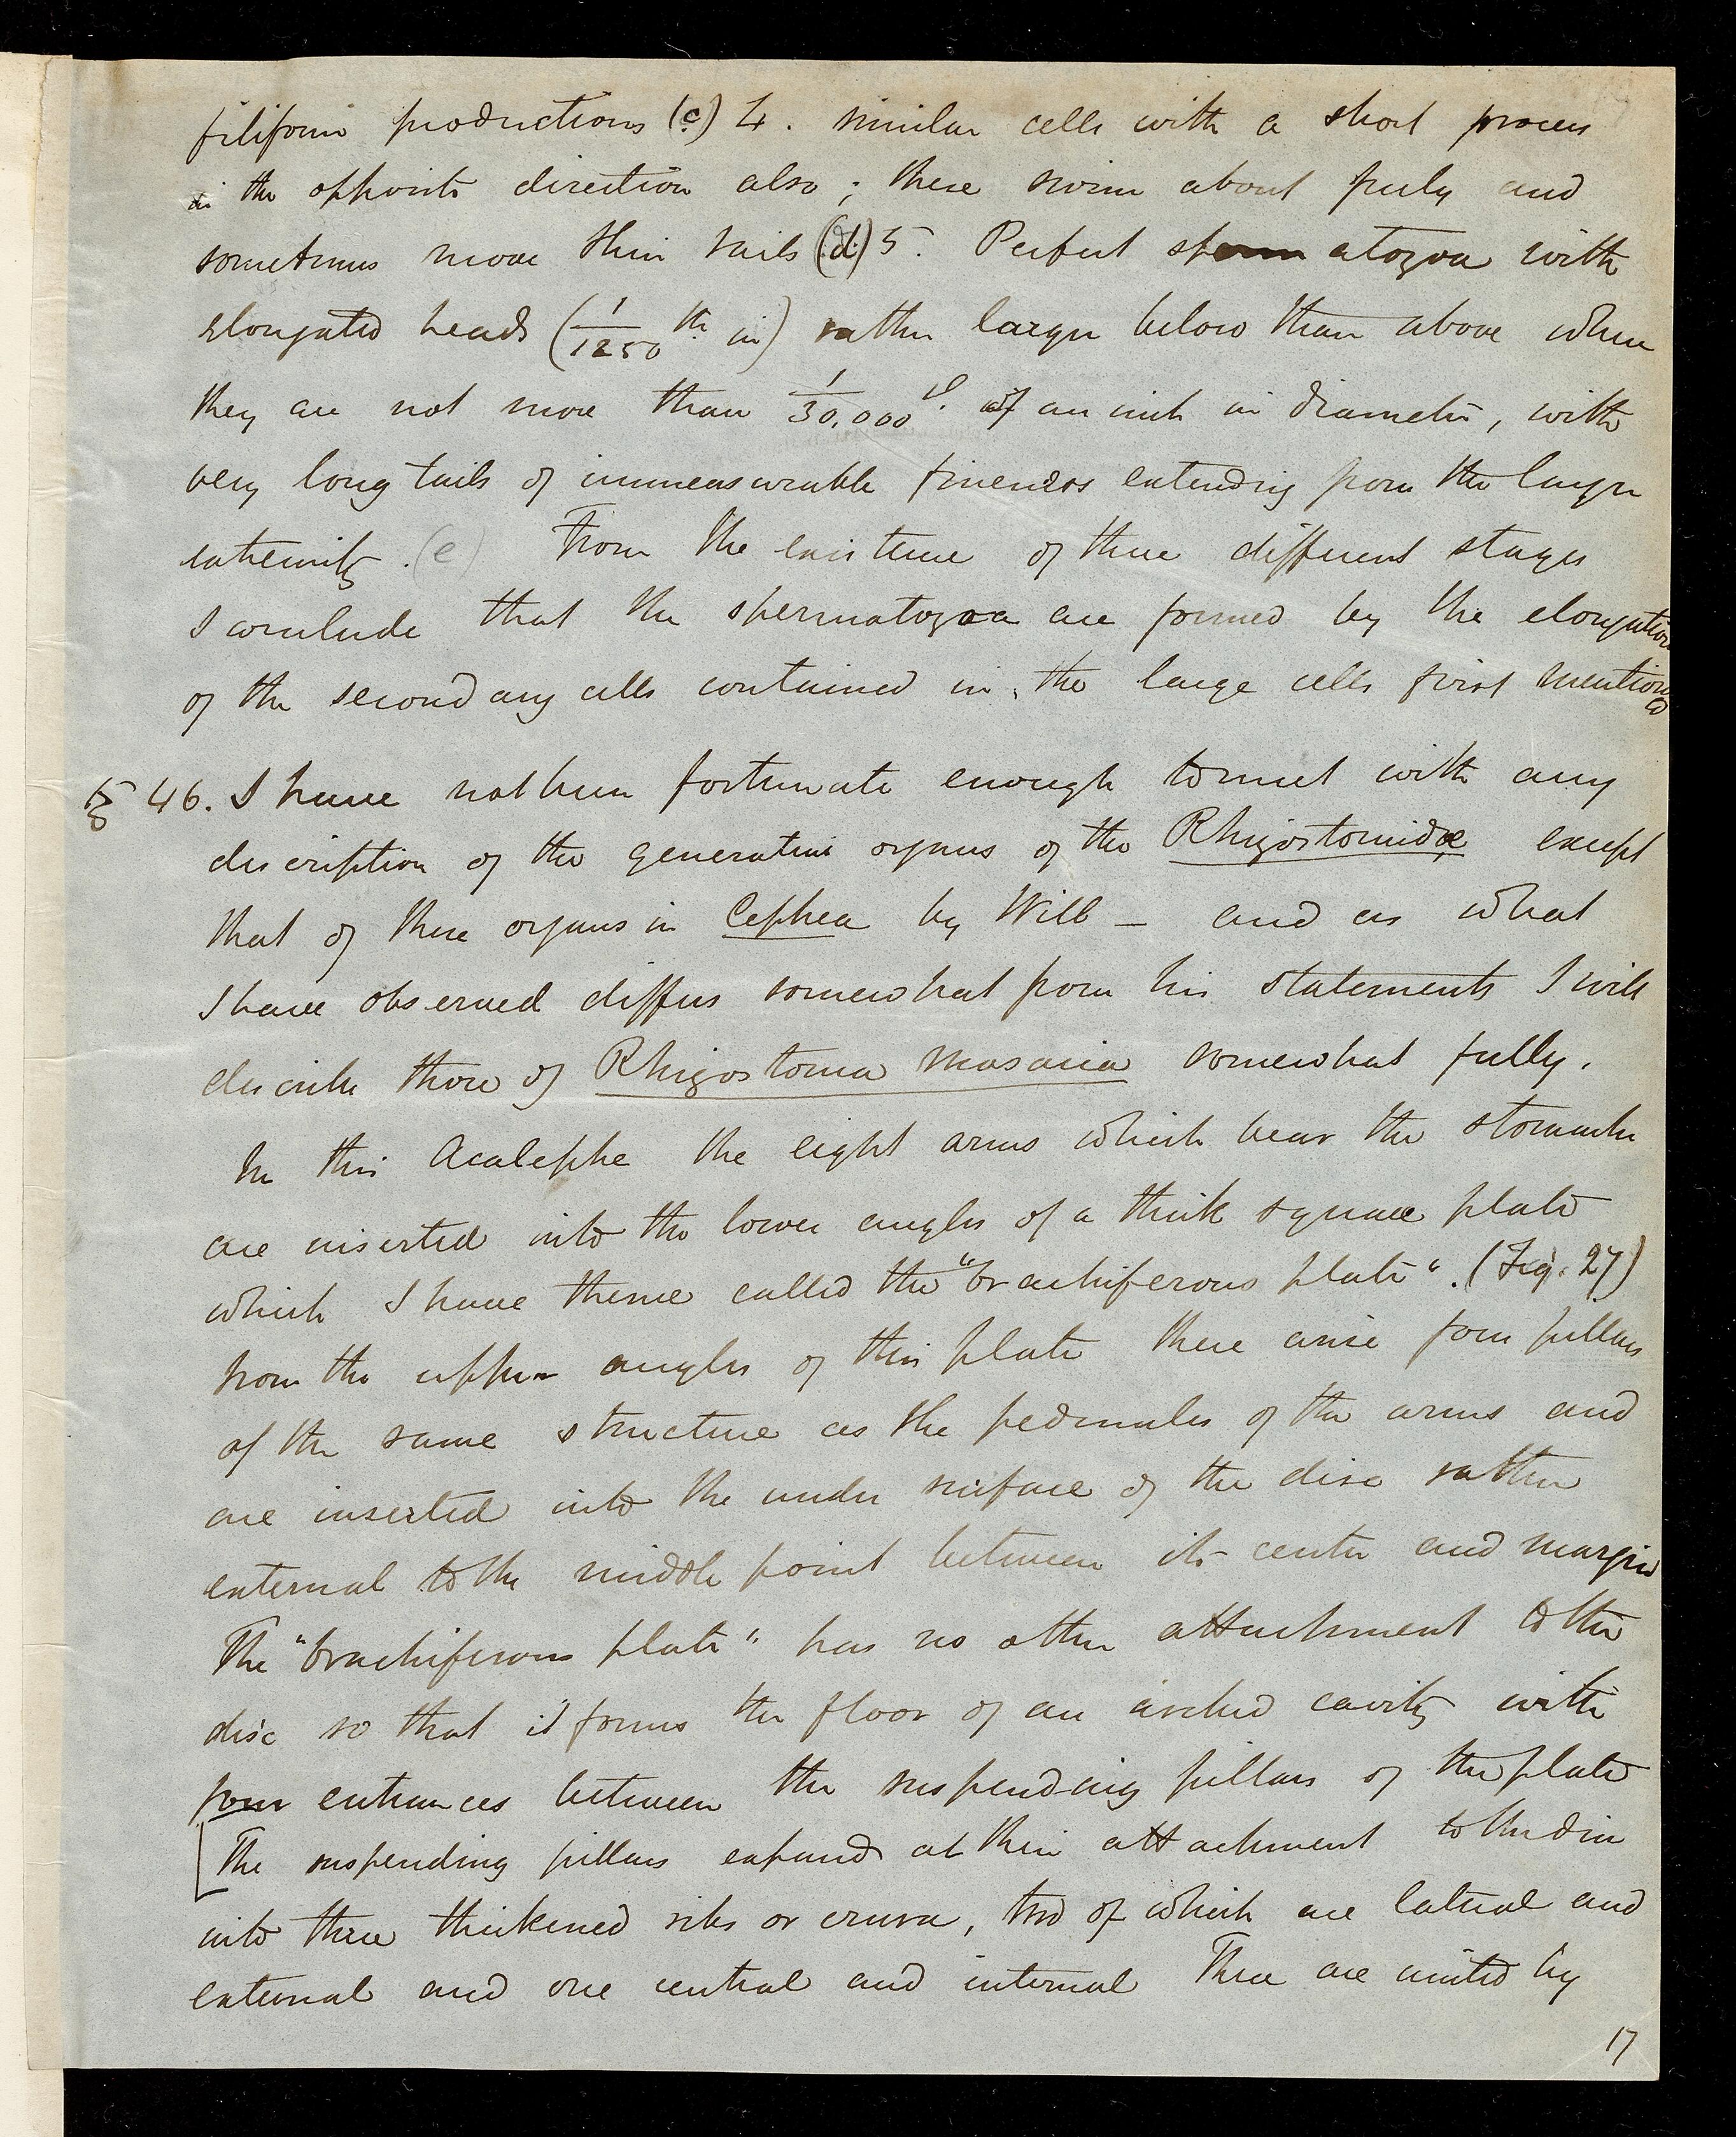 filiform productions (c) 4. similar cells with a short process
in the opposite direction also; these swim about freely and
sometimes move their tails (d) 5. Perfect spermatozoa with
elongated heads (1/1250th in) rather larger below than above where
they are not more than 1/30,000th of an inch in diameter, with
very long tails of immeasurable fineness extending from the larger
extremity. (e) From the existence of these different stages
I conclude that the spermatozoa are formed by the elongation
of the secondary cells contained in the large cells first mentioned
§ 46. I have not been fortunate enough to meet with any
description of the generative organs of the Rhizostomidæ except
that of these organs in Cephea by Will — and as what
I have observed differs somewhat from his statements I will
describe those of Rhizostoma mosaica somewhat fully.
In this Acalephe the eight arms which bear the stomachs
are inserted into the lower angles of a thick square plate
which I have thence called the "brachiferous plate". (Fig. 27)
From the upper angles of this plate there arise four pillars
of the same structure as the peduncles of the arms and
are inserted into the under surface of the disc rather
external to the middle point between its center and margin
The "brachiferous plate" has no other attachment to the
disc so that it forms the floor of an arched cavity with
four entrances between the suspending pillars of the plate
[The suspending pillars expand at their attachment to the disc
into three thickened ribs or crura, two of which are lateral and
external and one central and internal These are united by
17